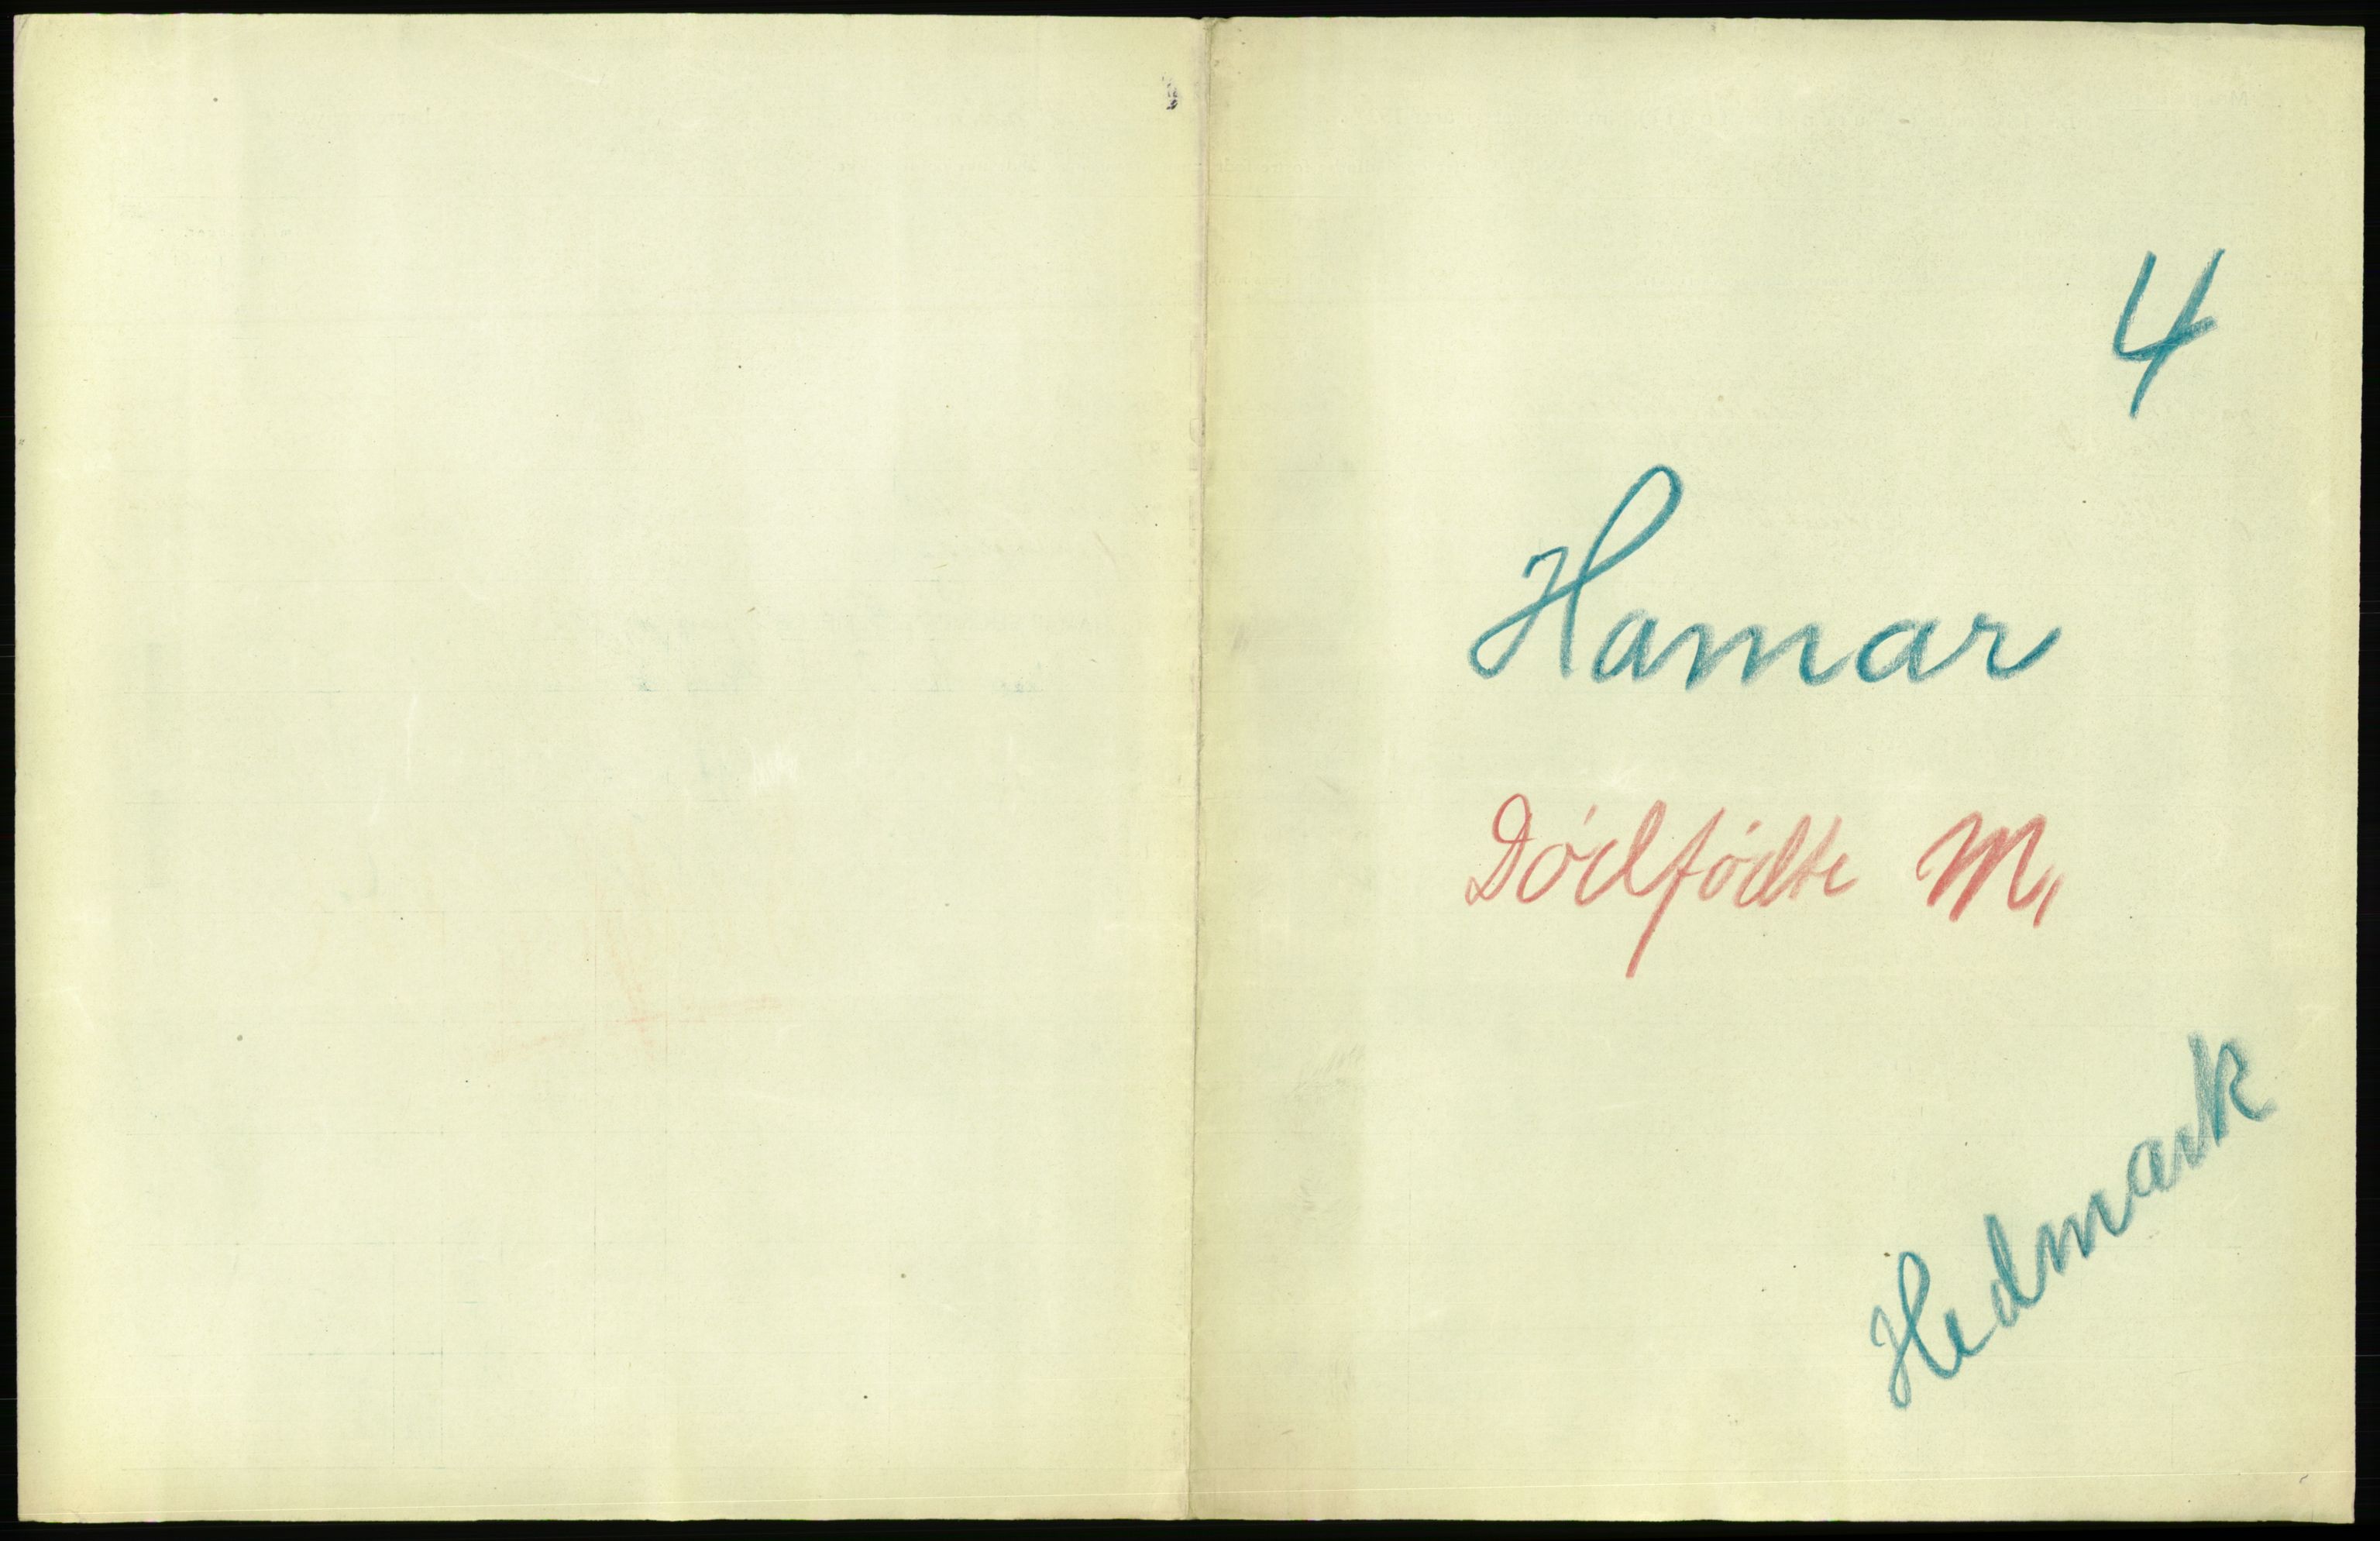 4
Hamar
Dødfødte M,
Hedmark